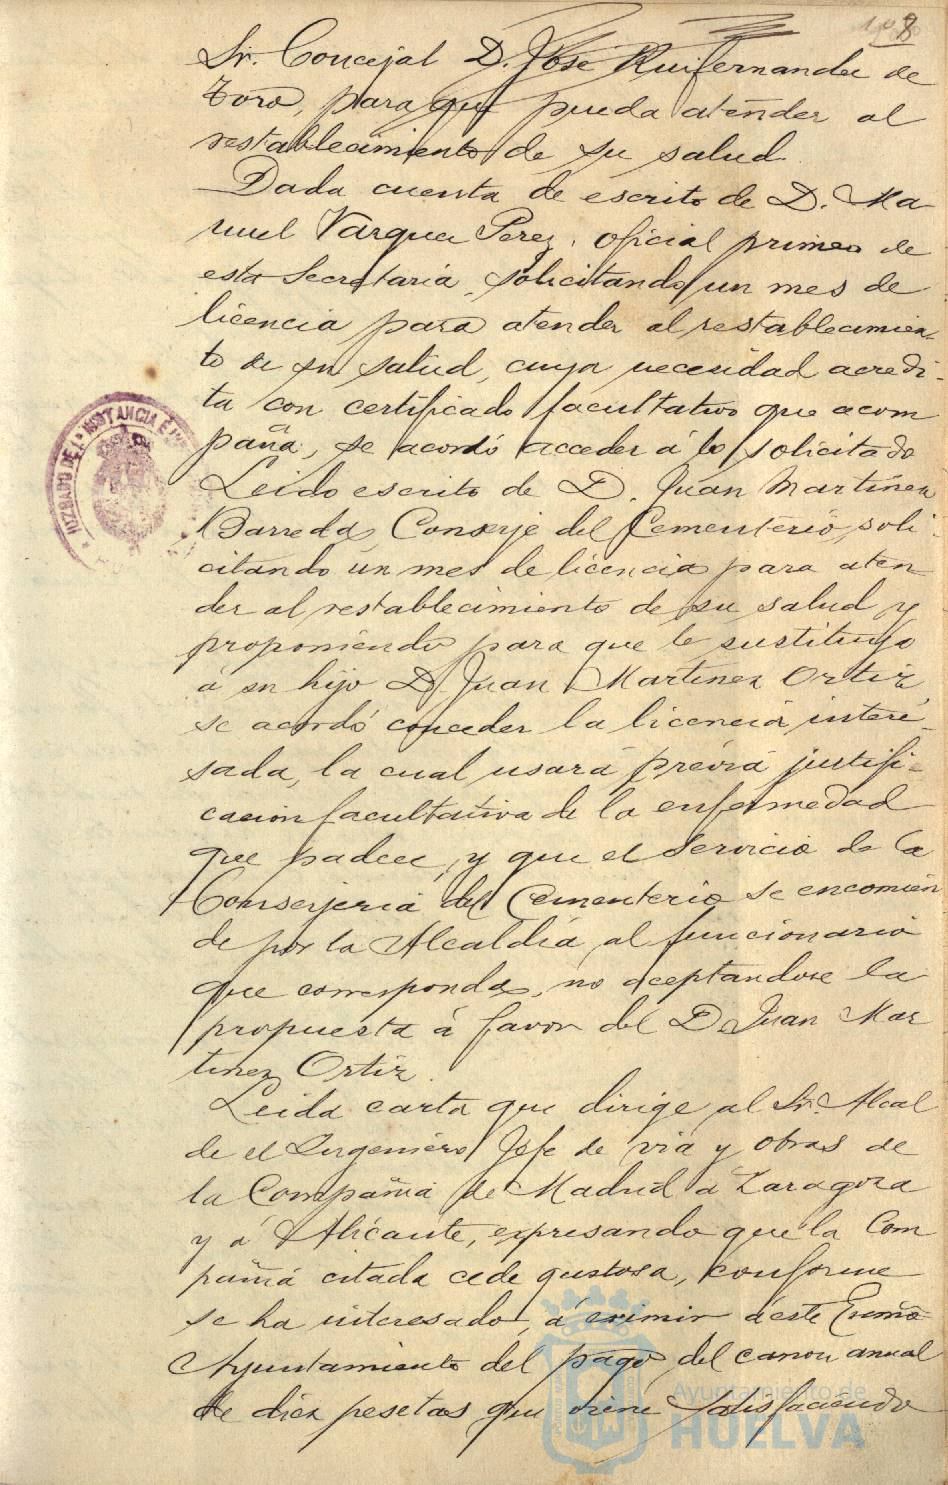 8
Sr. Concejal D. José Ruifernandez de
Toro, para que pueda atender al
restablecimiento de su salud.
Dada cuenta de escrito de D. Ma-
nuel Vazquez Perez, oficial primero de
esta Secretaría, solicitando un mes de
licencia para atender al restablecimien-
to de su salud, cuya necesidad acredi-
ta con certificado facultativo que acom
paña, se acordó acceder á lo solicitado
Leido escrito de D. Juan Martinez
Barreda, Conserje del Cementerio, soli-
citando un mes de licencia para aten-
der al restablecimiento de su salud y
proponiendo para que le sustituya
á su hijo D. Juan Martinez Ortiz,
se acordó conceder la licencia intere-
sada, la cual usará prévia justifi-
cación facultativa de la enfermedad
que padece, y que el servicio de la
Conserjeria del Cementerio se encomien
de por la Alcaldía al funcionario
que corresponda, no aceptandose la
propuesta á favor del D. Juan Mar
tinez Ortiz.
Leida carta que dirige al Sr. Alcal
de el Ingeniero Jefe de via y obras de
la Compañia de Madrid á Zaragoza
y á Alicante, expresando que la Com
pañia citada cede gustosa, conforme
se ha interesado, á eximir á este Excmo
Ayuntamiento del pago del canon anual
de diez pesetas que viene satisfaciendo
JUZGADO DE 1ª INSTANCIA É
Ayuntamiento de
HUELVA